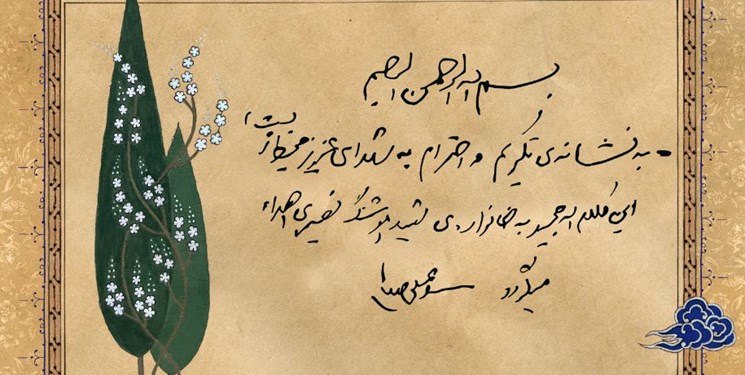 بسم الله الرحمن الرحیم
- به نشانه‌ی تکریم و احترام به شهدای عزیز محیط زیست،
این کلام الله مجید به خانواده‌ی شهید نصیری اهداء
میگردد